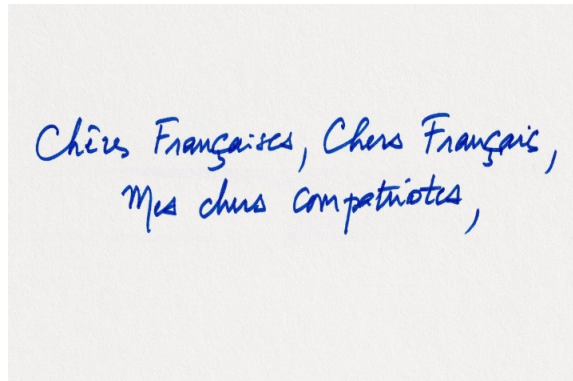 Chères Françaises, Chers Français,
Mes chers compatriotes,